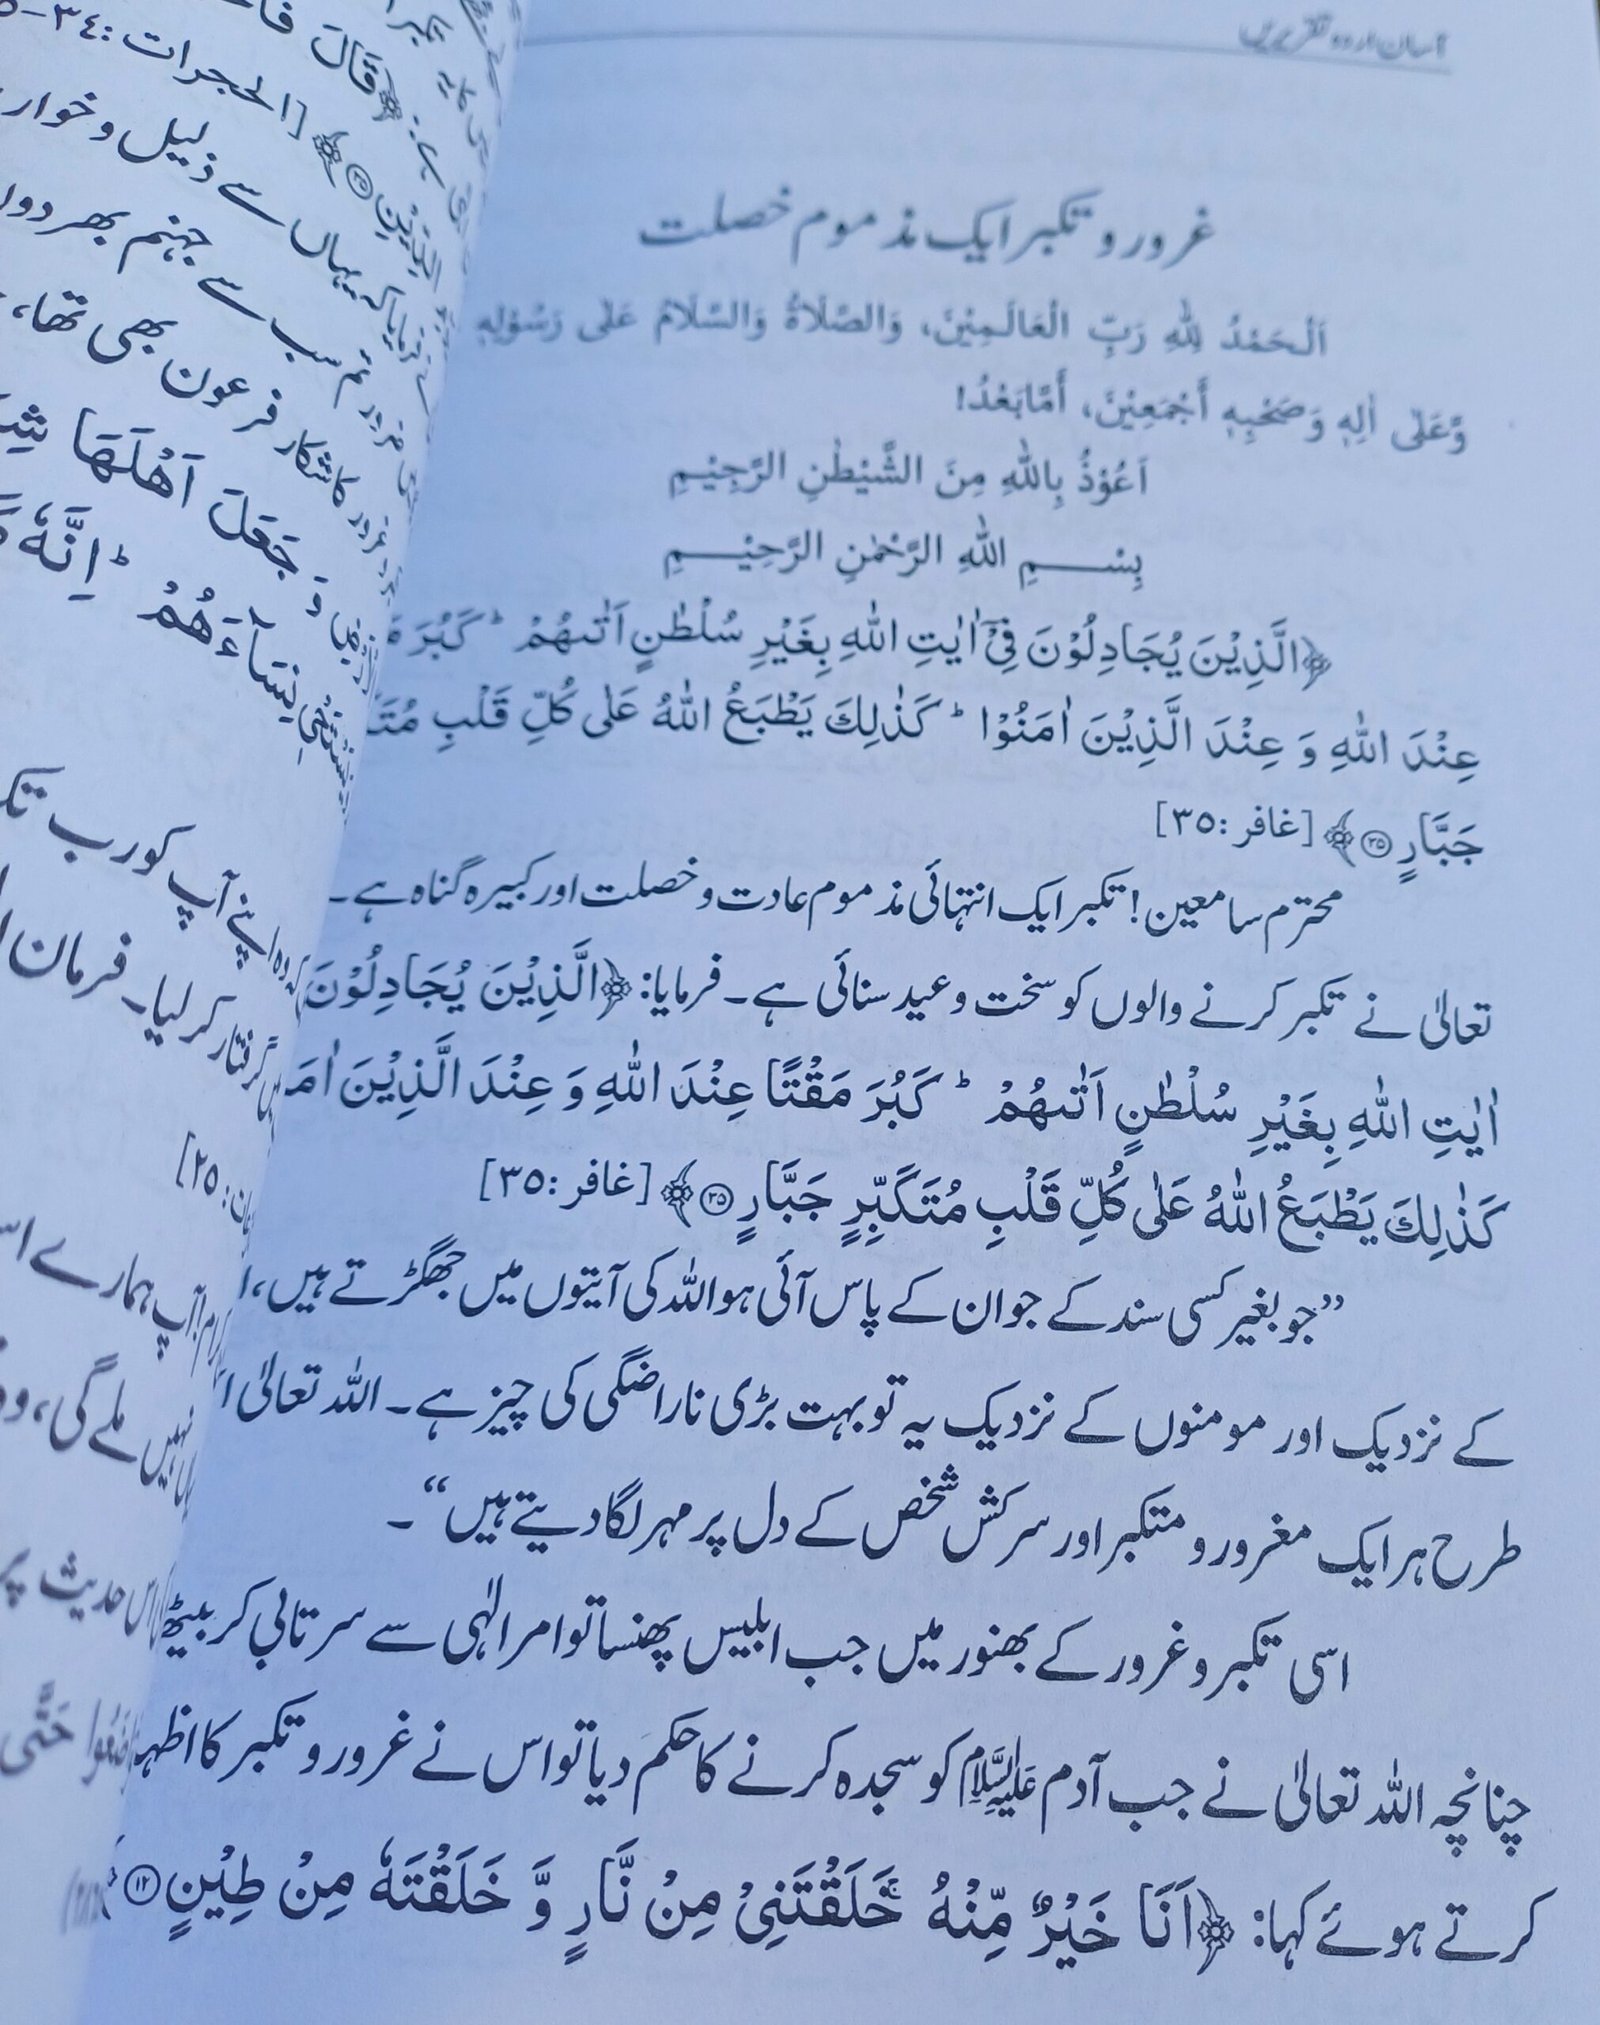 آسان اردو تقریریں
غرور و تکبر ایک مذموم خصلت
اَلْحَمْدُ لِلّٰهِ رَبِّ الْعَالَمِيْنَ، وَالصَّلَاةُ وَالسَّلَامُ عَلٰى رَسُوْلِهٖ
وَّعَلٰى اٰلِهٖ وَصَحْبِهٖ أَجْمَعِيْنَ، أَمَّابَعْدُ!
اَعُوْذُ بِاللّٰهِ مِنَ الشَّيْطٰنِ الرَّجِيْمِ
بِسْمِ اللّٰهِ الرَّحْمٰنِ الرَّحِيْمِ
﴿الَّذِيْنَ يُجَادِلُوْنَ فِيْۤ اٰيٰتِ اللّٰهِ بِغَيْرِ سُلْطٰنٍ اَتٰىهُمْ ؕ كَبُرَ
عِنْدَ اللّٰهِ وَ عِنْدَ الَّذِيْنَ اٰمَنُوْا ؕ كَذٰلِكَ يَطْبَعُ اللّٰهُ عَلٰى كُلِّ قَلْبِ
جَبَّارٍ ۝۳۵﴾ [غافر:٣٥]
محترم سامعین! تکبر ایک انتہائی مذموم عادت و خصلت اور کبیرہ گناہ ہے۔
تعالیٰ نے تکبر کرنے والوں کو سخت وعید سنائی ہے۔ فرمایا: ﴿الَّذِيْنَ يُجَادِلُوْنَ
اٰيٰتِ اللّٰهِ بِغَيْرِ سُلْطٰنٍ اَتٰىهُمْ ؕ كَبُرَ مَقْتًا عِنْدَ اللّٰهِ وَ عِنْدَ الَّذِيْنَ
كَذٰلِكَ يَطْبَعُ اللّٰهُ عَلٰى كُلِّ قَلْبِ مُتَكَبِّرٍ جَبَّارٍ ۝۳۵﴾ [غافر:٣٥]
”جو بغیر کسی سند کے جو ان کے پاس آئی ہو اللہ کی آیتوں میں جھگڑتے ہیں،
کے نزدیک اور مومنوں کے نزدیک یہ تو بہت بڑی ناراضگی کی چیز ہے۔ اللہ تعالیٰ
طرح ہر ایک مغرور و متکبر اور سرکش شخص کے دل پر مہر لگا دیتے ہیں“۔
اسی تکبر و غرور کے بھنور میں جب ابلیس پھنسا تو امر الٰہی سے سرتابی کر بیٹھا
چنانچہ اللہ تعالیٰ نے جب آدم علیہ السلام کو سجدہ کرنے کا حکم دیا تو اس نے غرور و تکبر کا
کرتے ہوئے کہا: ﴿اَنَا خَيْرٌ مِّنْهُ ۚ خَلَقْتَنِيْ مِنْ نَّارٍ وَّ خَلَقْتَهٗ مِنْ طِيْنٍ ۝۱۲
﴿قَالَ
الدِّيْنِ ۝۳۵﴾ [الحجرات:٣٤-
فرمایا کہ یہاں سے ذلیل و خوار
تم سب سے جہنم بھر دوں
غرور کا شکار فرعون بھی تھا،
وَ جَعَلَ اَهْلَهَا
نِسَآءَهُمْ ؕ اِنَّهٗ
اپنے آپ کو رب
گرفتار کر لیا۔ فرمان
:٢٥]
آپ ہمارے
نہیں ملے گی،
اس حدیث پر
حَتّٰى